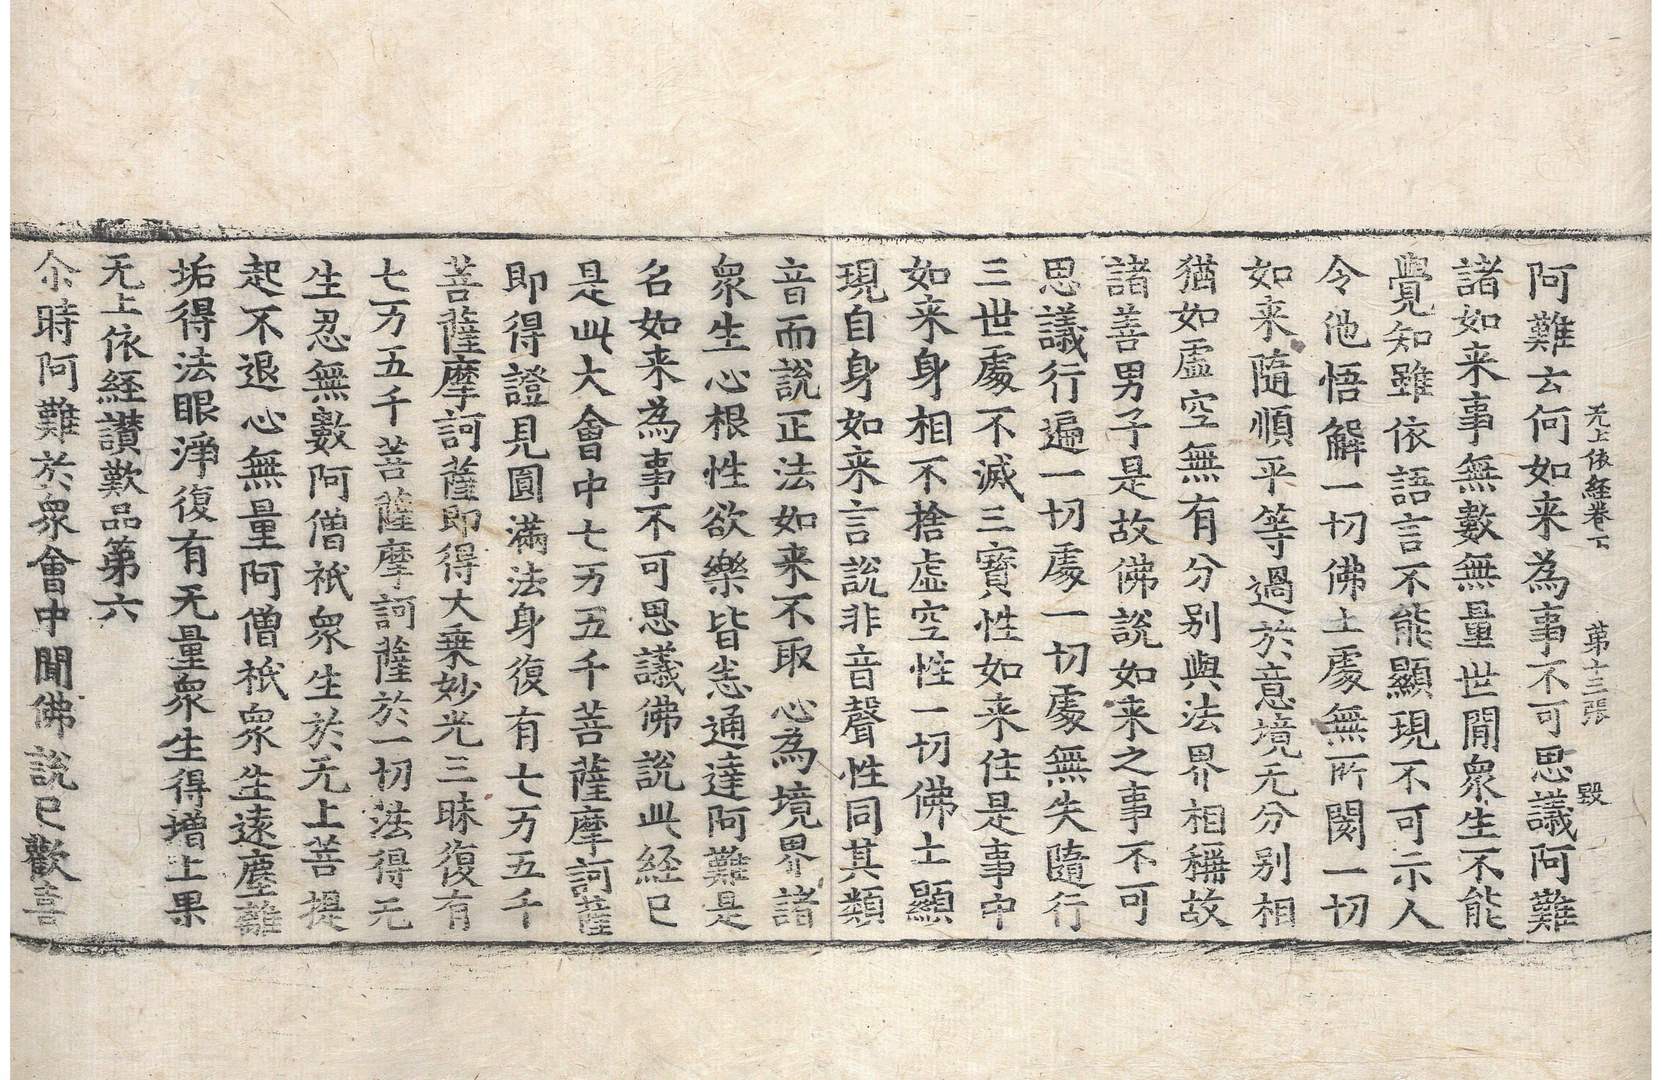 无上依經卷下 第十三張 毀
阿難云何如来為事不可思議阿難
諸如来事無數無量世間衆生不能
覺知雖依語言不能顯現不可示人
令他悟解一切佛土處無所閡一切
如来隨順平等過於意境无分别相
猶如虛空無有分别與法界相稱故
諸善男子是故佛說如来之事不可
思議行遍一切處一切處無失隨行
三世處不滅三寳性如来住是事中
如来身相不捨虛空性一切佛土顯
現自身如来言說非音聲性同其類
音而說正法如来不取心為境界諸
衆生心根性欲樂皆悉通達阿難是
名如来為事不可思議佛說此經已
是此大會中七万五千菩薩摩訶薩
即得證見圓滿法身復有七万五千
菩薩摩訶薩即得大乗妙光三昧復有
七万五千菩薩摩訶薩於一切法得无
生忍無數阿僧祇衆生於无上菩提
起不退心無量阿僧祇衆生遠塵離
垢得法眼淨復有无量衆生得増上果
无上依經讃歎品第六
尒時阿難於衆會中聞佛說已歡喜